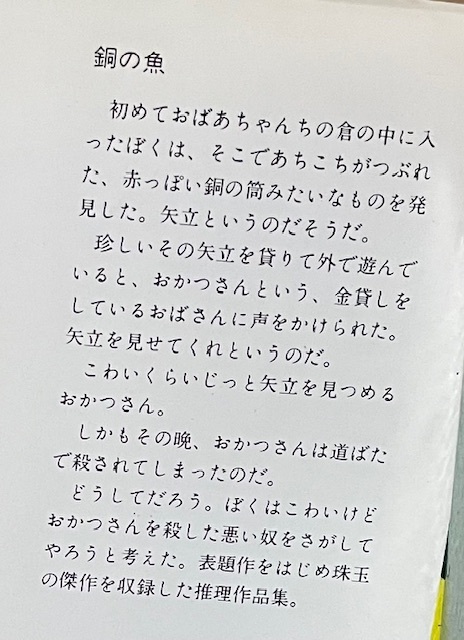 銅の魚
初めておばあちゃんちの倉の中に入
ったぼくは、そこであちこちがつぶれ
た、赤っぽい銅の筒みたいなものを発
見した。矢立というのだそうだ。
珍しいその矢立を貸りて外で遊んで
いると、おかつさんという、金貸しを
しているおばさんに声をかけられた。
矢立を見せてくれというのだ。
こわいくらいじっと矢立を見つめる
おかつさん。
しかもその晩、おかつさんは道ばた
で殺されてしまったのだ。
どうしてだろう。ぼくはこわいけど
おかつさんを殺した悪い奴をさがして
やろうと考えた。表題作をはじめ珠玉
の傑作を収録した推理作品集。